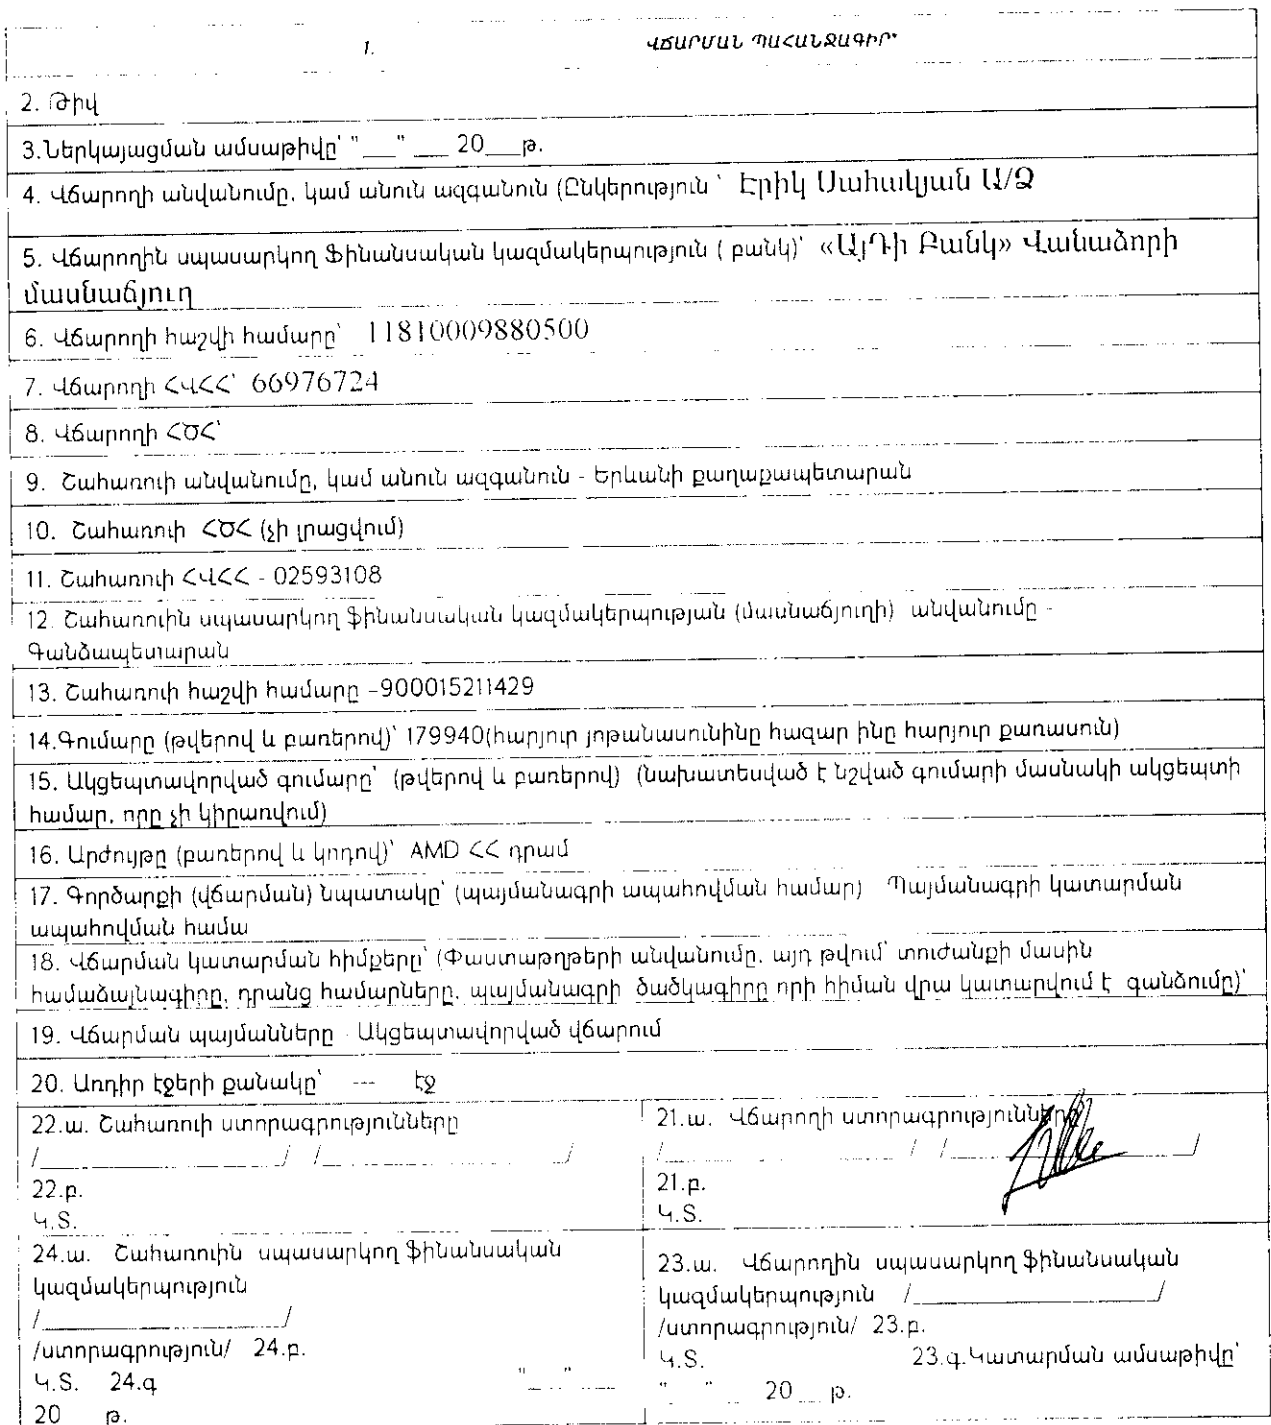 1. ՎՃԱՐՄԱՆ ՊԱՀԱՆՋԱԳԻՐ*
2. Թիվ
3.Ներկայացման ամսաթիվը՝ "___" ___ 20___թ.
4. Վճարողի անվանումը, կամ անուն ազգանուն (Ընկերություն ՝ Էրիկ Սահակյան Ա/Ձ
5. Վճարողին սպասարկող Ֆինանսական կազմակերպություն ( բանկ)՝ «ԱյԴի Բանկ» Վանաձորի
մասնաճյուղ
6. Վճարողի հաշվի համարը՝ 11810009880500
7. Վճարողի ՀՎՀՀ՝ 66976724
8. Վճարողի ՀԾՀ՝
9. Շահառուի անվանումը, կամ անուն ազգանուն - Երևանի քաղաքապետարան
10. Շահառուի ՀԾՀ (չի լրացվում)
11. Շահառուի ՀՎՀՀ - 02593108
12. Շահառուին սպասարկող ֆինանսական կազմակերպության (մասնաճյուղի) անվանումը -
Գանձապետարան
13. Շահառուի հաշվի համարը –900015211429
14.Գումարը (թվերով և բառերով)՝ 179940(հարյուր յոթանասունինը հազար ինը հարյուր քառասուն)
15. Ակցեպտավորված գումարը՝ (թվերով և բառերով) (նախատեսված է նշված գումարի մասնակի ակցեպտի
համար, որը չի կիրառվում)
16. Արժույթը (բառերով և կոդով)՝ AMD ՀՀ դրամ
17. Գործարքի (վճարման) նպատակը՝ (պայմանագրի ապահովման համար) Պայմանագրի կատարման
ապահովման համա
18. Վճարման կատարման հիմքերը՝ (Փաստաթղթերի անվանումը, այդ թվում՝ տուժանքի մասին
համաձայնագիրը, դրանց համարները, պայմանագրի ծածկագիրը որի հիման վրա կատարվում է գանձումը)՝
19. Վճարման պայմանները - Ակցեպտավորված վճարում
20. Առդիր էջերի քանակը՝ --- էջ
22.ա. Շահառուի ստորագրությունները
/____________________/ /____________________/
22.բ.
Կ.Տ.
21.ա. Վճարողի ստորագրությունները
/____________________/ /____________________/
21.բ.
Կ.Տ.
24.ա. Շահառուին սպասարկող ֆինանսական
կազմակերպություն
/____________________/
/ստորագրություն/ 24.բ.
Կ.Տ. 24.գ "___" ___
20 թ.
23.ա. Վճարողին սպասարկող ֆինանսական
կազմակերպություն /____________________/
/ստորագրություն/ 23.բ.
Կ.Տ. 23.գ.Կատարման ամսաթիվը՝
"___" ___ 20___ թ.